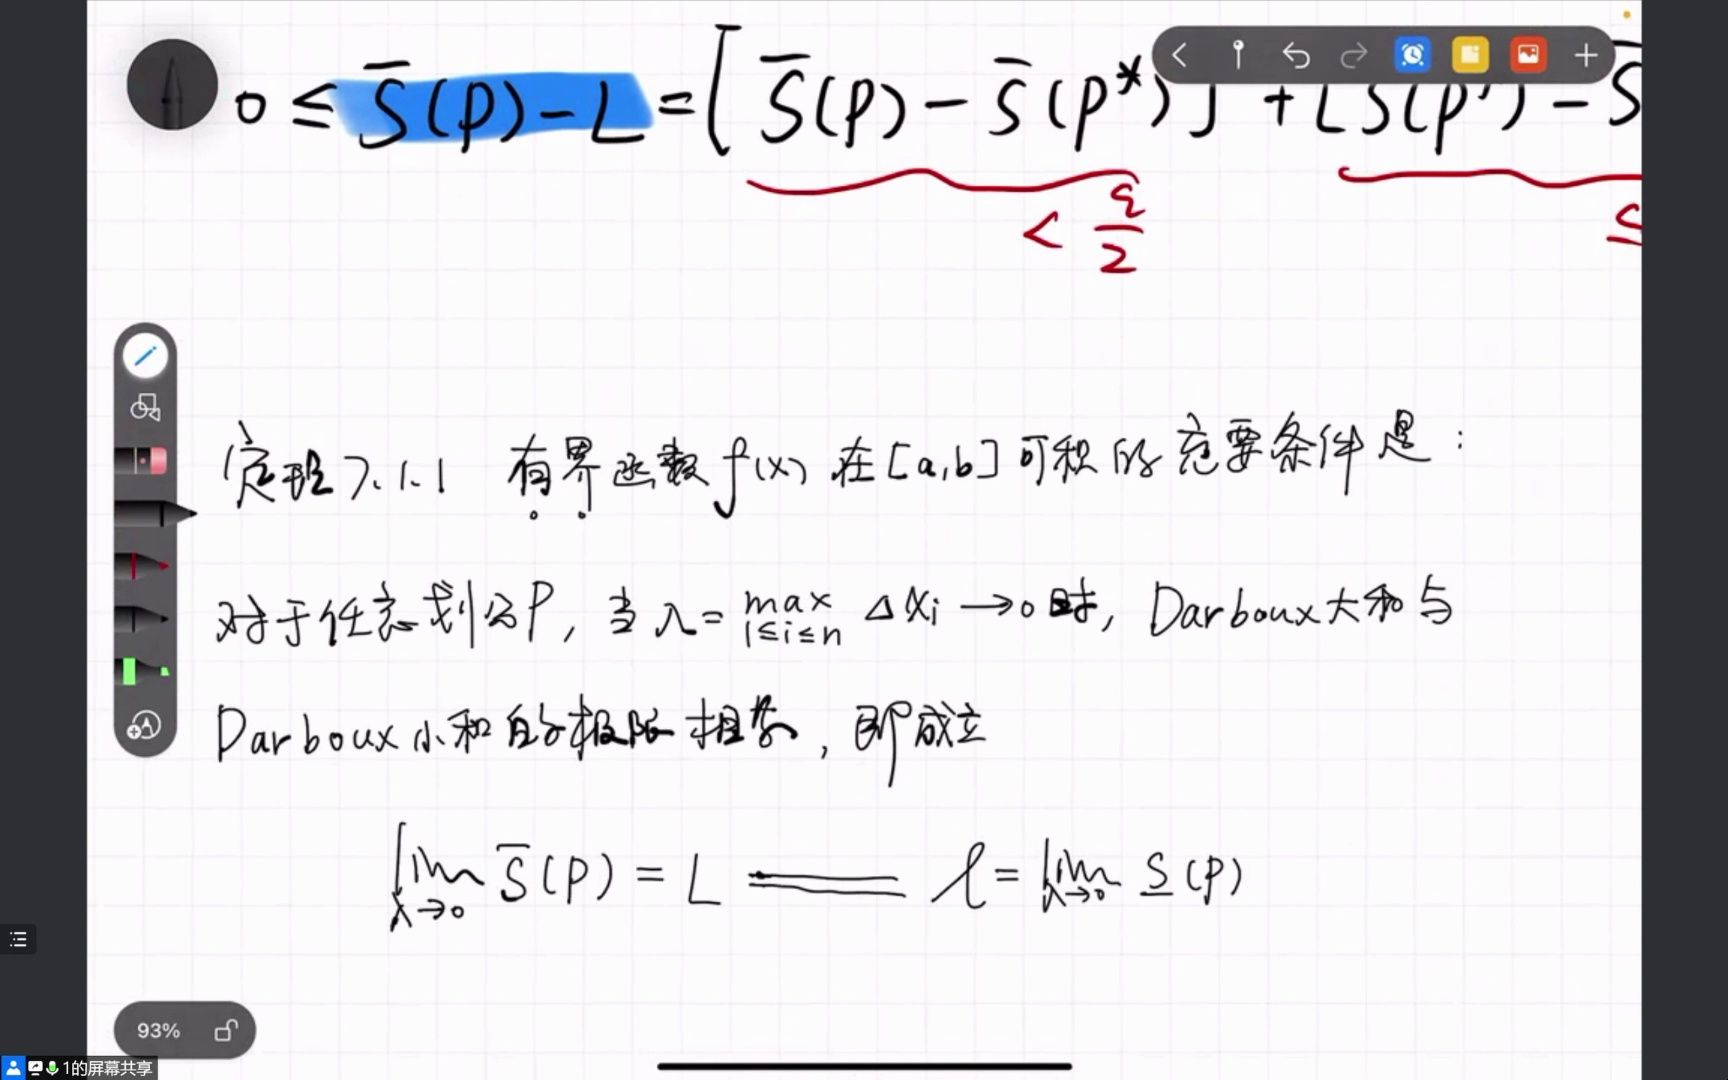 0 ≤ S̄(p) − L = [S̄(p) − S̄(p*)] + [S̄(p') − S̄
< ε/2
≤
定理7.1.1 有界函数f(x)在[a,b]可积的充要条件是：
对于任意划分P，当λ= max Δxi →0时，Darboux大和与
1≤i≤n
Darboux小和的极限相等，即成立
lim S̄(p) = L ═══ l = lim S̲(p)
λ→0 λ→0
93%
1的屏幕共享